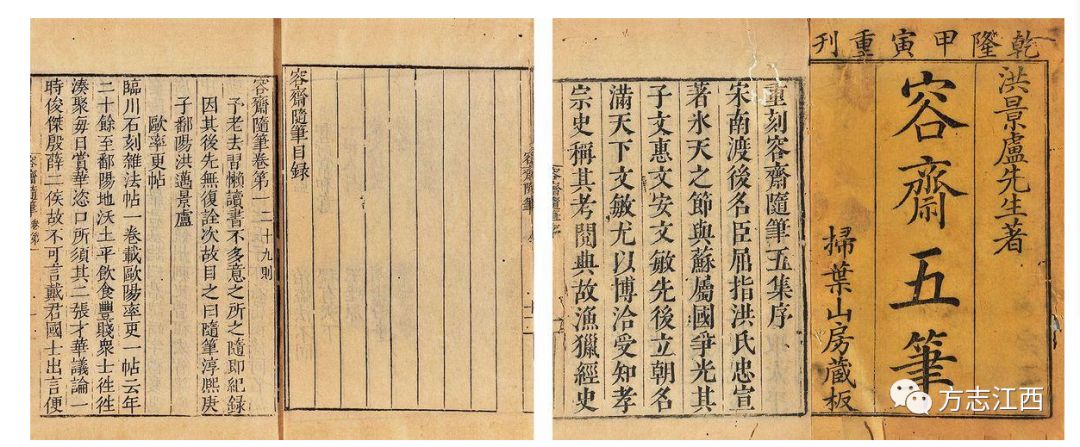 乾隆甲寅重刊
洪景盧先生著
容齋五筆
掃葉山房藏板
重刻容齋隨筆五集序
宋南渡後名臣屈指洪氏忠宣
著氷天之節與蘇屬國爭光其
子文惠文安文敏先後立朝名
滿天下文敏尤以博洽受知孝
宗史稱其考閱典故漁獵經史
容齋隨筆
容齋隨筆
容齋隨筆目錄
容齋隨筆卷第一 二十九則
予老去習懶讀書不多意之所之隨即紀錄
因其後先無復詮次故目之曰隨筆淳熙庚
子鄱陽洪邁景盧
歐率更帖
臨川石刻雜法帖一卷載歐陽率更一帖云年
二十餘至鄱陽地沃土平飲食豐賤衆士徃徃
湊聚每日賞華恣口所須其二張才華議論一
時俊傑殷薛二侯故不可言戴君國士出言便
容齋隨筆 卷第一
方志江西